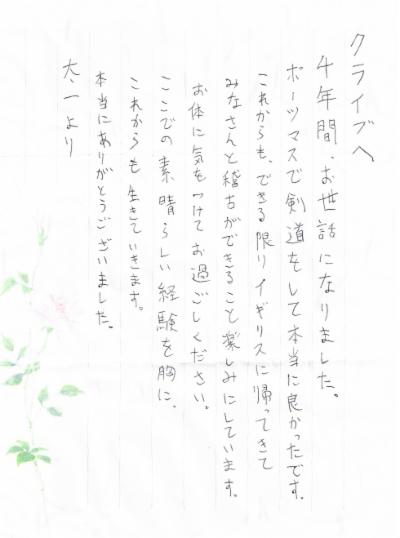 クライブへ
4年間、お世話になりました。
ポーツマスで剣道をして本当に良かったです。
これからも、できる限りイギリスに帰ってきて
みなさんと稽古ができること楽しみにしています。
お体に気をつけてお過ごしください。
ここでの素晴らしい経験を胸に、
これからも生きていきます。
本当にありがとうございました。
太一より